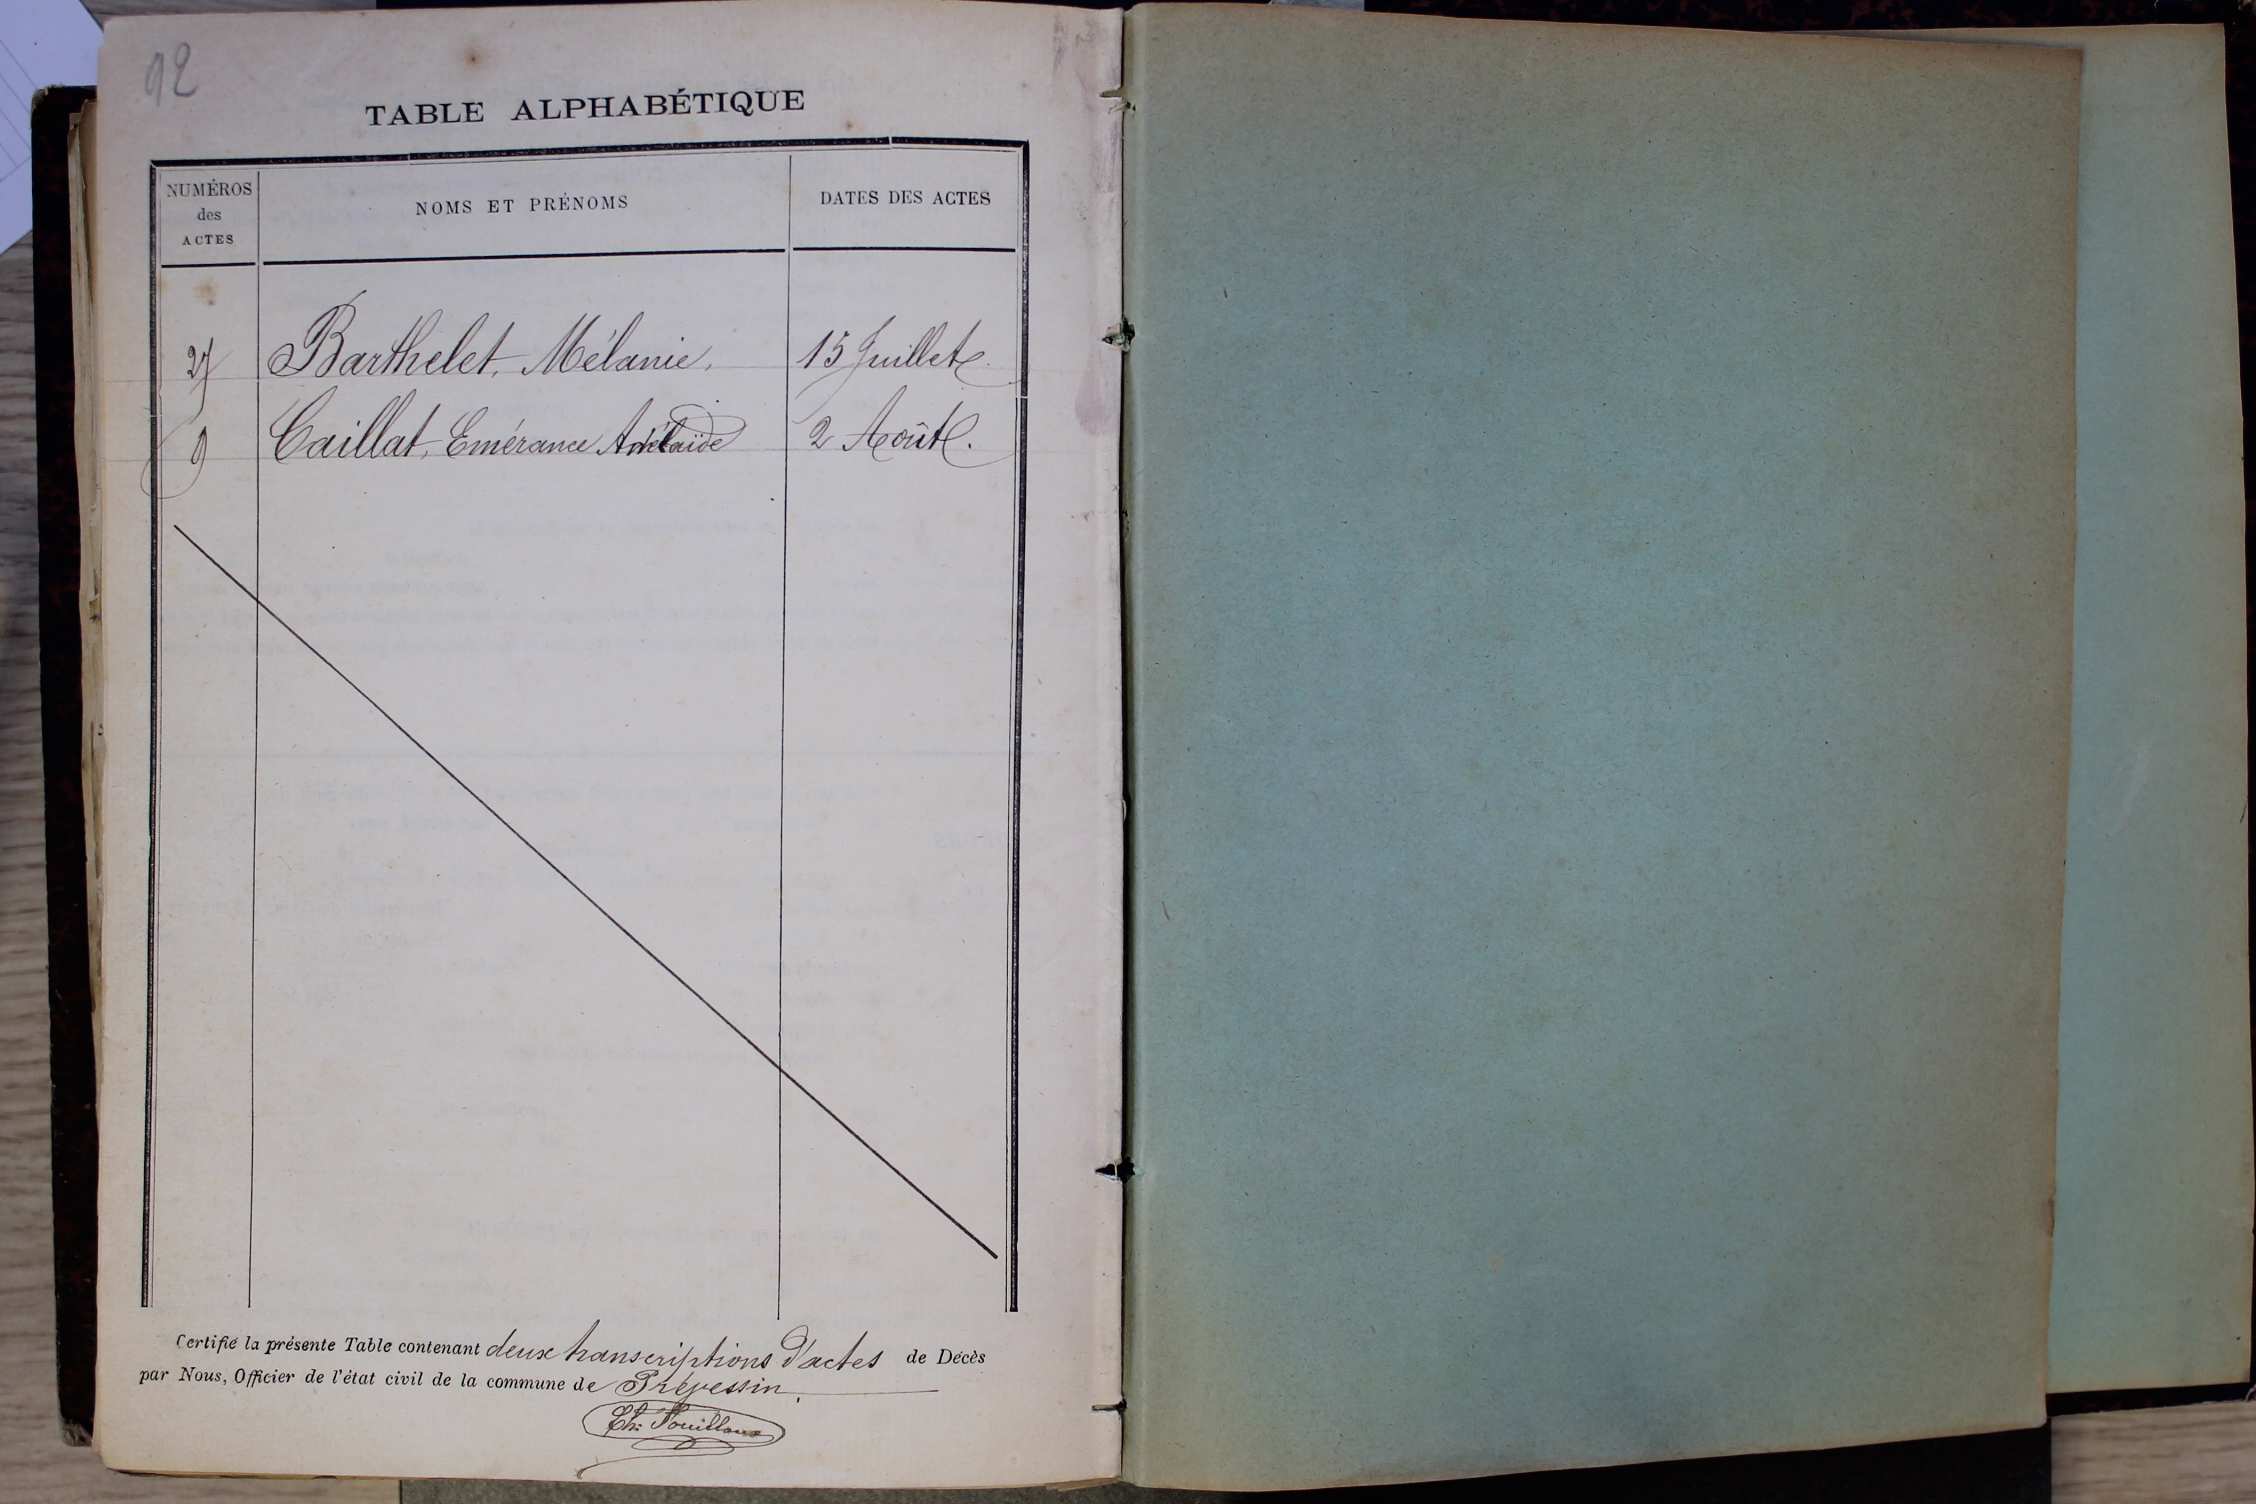 92
TABLE ALPHABÉTIQUE
NUMÉROS
des
ACTES
NOMS ET PRÉNOMS
DATES DES ACTES
27 Barthelet, Mélanie, 15 Juillet.
9 Caillat, Emérance Adélaïde 2 Août.
Certifié la présente Table contenant deux transcriptions d'actes de Décès
par Nous, Officier de l'état civil de la commune de Prévessin.